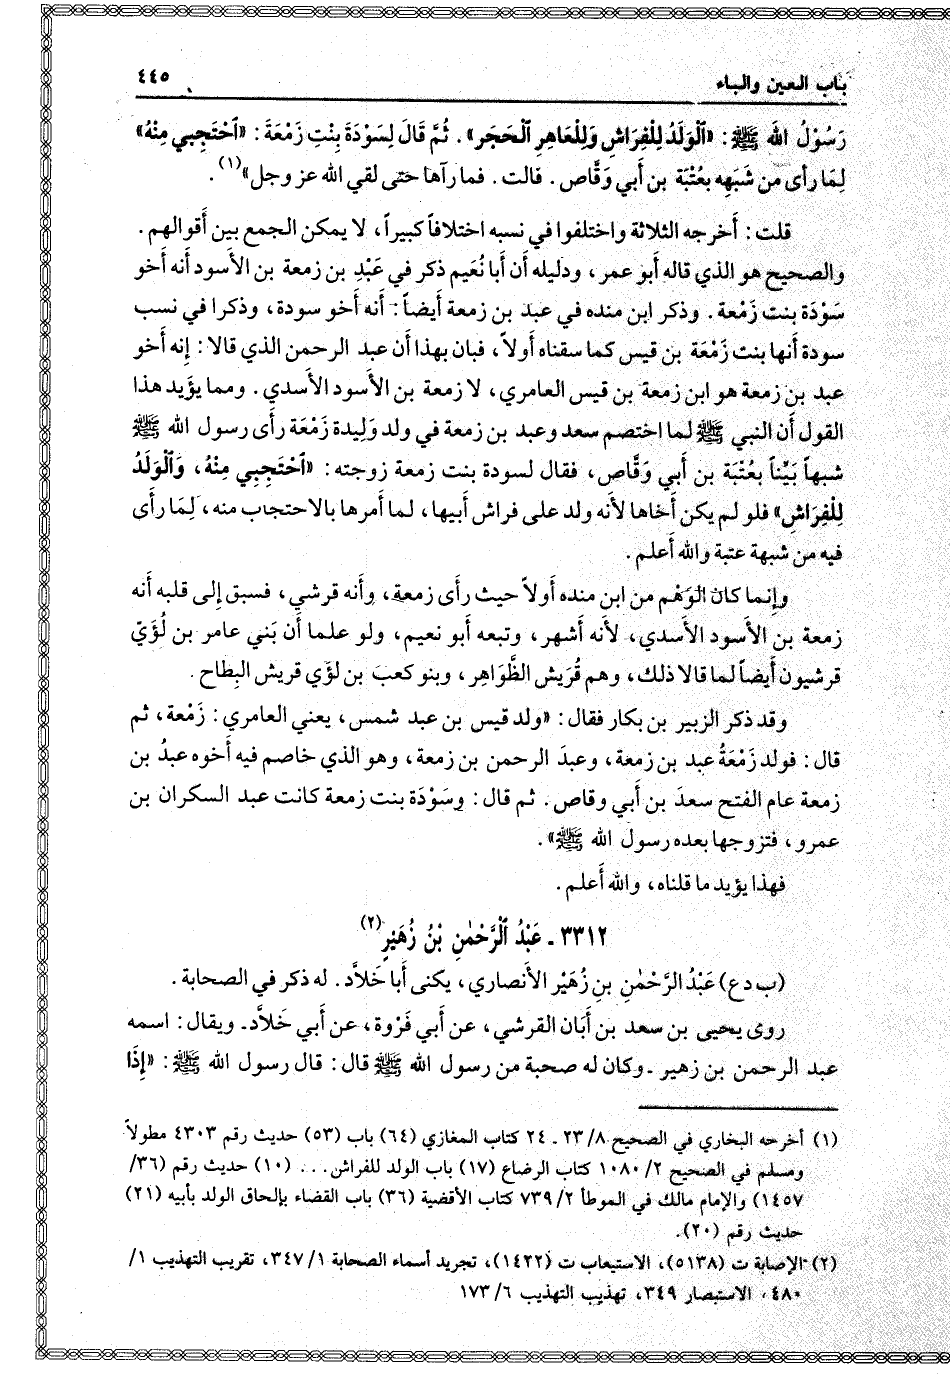 باب العين والباء
٤٤٥
رَسُوْلُ الله ﷺ: «ٱلْوَلَدُ لِلْفِرَاشِ وَلِلْعَاهِرِ ٱلْحَجَر». ثُمَّ قَالَ لِسَوْدَةَ بِنْتِ زَمْعَةَ: «ٱحْتَجِبي مِنْهُ»
لِمَا رأى من شَبَهِه بعُتْبَة بن أبي وَقَّاص. قالت. فما رآها حتى لقي الله عز وجل»(١).
قلت: أَخرجه الثلاثة واختلفوا في نسبه اختلافاً كبيراً، لا يمكن الجمع بين أَقوالهم.
والصحيح هو الذي قاله أبو عمر، ودليله أن أَبا نُعَيم ذكر في عَبْدِ بن زمعة بن الأسود أنه أخو
سَوْدَة بنت زَمْعة. وذكر ابن منده في عبد بن زمعة أيضاً: أنه أَخو سودة، وذكرا في نسب
سودة أنها بنت زَمْعَة بن قيس كما سقناه أَولاً، فبان بهذا أن عبد الرحمن الذي قالا: إنه أَخو
عبد بن زمعة هو ابن زمعة بن قيس العامري، لا زمعة بن الأسود الأسدي. ومما يؤيد هذا
القول أن النبي ﷺ لما اختصم سعد وعبد بن زمعة في ولد وَلِيدة زَمْعَة رأى رسول الله ﷺ
شبهاً بَيِّناً بعُتْبَة بن أبي وَقَّاص، فقال لسودة بنت زمعة زوجته: «ٱحْتَجِبِي مِنْهُ، وَٱلْوَلَدُ
لِلْفِرَاشِ» فلو لم يكن أَخاها لأنه ولد على فراش أبيها، لما أمرها بالاحتجاب منه، لِمَا رأى
فيه من شبهة عتبة والله أعلم.
وإنما كان الوَهْم من ابن منده أَولاً حيث رأى زمعة، وأنه قرشي، فسبق إلى قلبه أنه
زمعة بن الأسود الأسدي، لأنه أَشهر، وتبعه أبو نعيم، ولو علما أن بَني عامر بن لُؤَيّ
قرشيون أَيضاً لما قالا ذلك، وهم قُرَيش الظَّواهِر، وبنو كعب بن لؤي قريش البِطاح.
وقد ذكر الزبير بن بكار فقال: «ولد قيس بن عبد شمس، يعني العامري: زَمْعة، ثم
قال: فولد زَمْعَةُ عبد بن زمعة، وعبدَ الرحمن بن زمعة، وهو الذي خاصم فيه أخوه عبدُ بن
زمعة عام الفتح سعدَ بن أبي وقاص. ثم قال: وسَوْدَة بنت زمعة كانت عبد السكران بن
عمرو، فتزوجها بعده رسول الله ﷺ».
فهذا يؤيد ما قلناه، والله أَعلم.
٣٣١٢ ـ عَبْدُ ٱلْرَّحْمٰنِ بْنُ زُهَيْرٍ(٢)
(ب دع) عَبْدُ الرَّحْمٰنِ بنِ زُهَيْر الأنصاري، يكنى أَبا خَلاَّد. له ذكر في الصحابة.
روى يحيى بن سعد بن أَبَان القرشي، عن أبي فَرْوة، عن أبي خَلاَّد ـ ويقال: اسمه
عبد الرحمن بن زهير ـ وكان له صحبة من رسول الله ﷺ قال: قال رسول الله ﷺ: «إِذَا
(١) أخرجه البخاري في الصحيح ٨/ ٢٣ ـ ٢٤ كتاب المغازي (٦٤) باب (٥٣) حديث رقم ٤٣٠٣ مطولاً
ومسلم في الصحيح ٢/ ١٠٨٠ كتاب الرضاع (١٧) باب الولد للفراش... (١٠) حديث رقم (٣٦/
١٤٥٧) والإمام مالك في الموطأ ٢/ ٧٣٩ كتاب الأقضية (٣٦) باب القضاء بإلحاق الولد بأبيه (٢١)
حديث رقم (٢٠).
(٢) الإصابة ت (٥١٣٨)، الاستيعاب ت (١٤٢٢)، تجريد أسماء الصحابة ١/ ٣٤٧، تقريب التهذيب ١/
٤٨٠، الاستبصار ٣٤٩، تهذيب التهذيب ٦/ ١٧٣